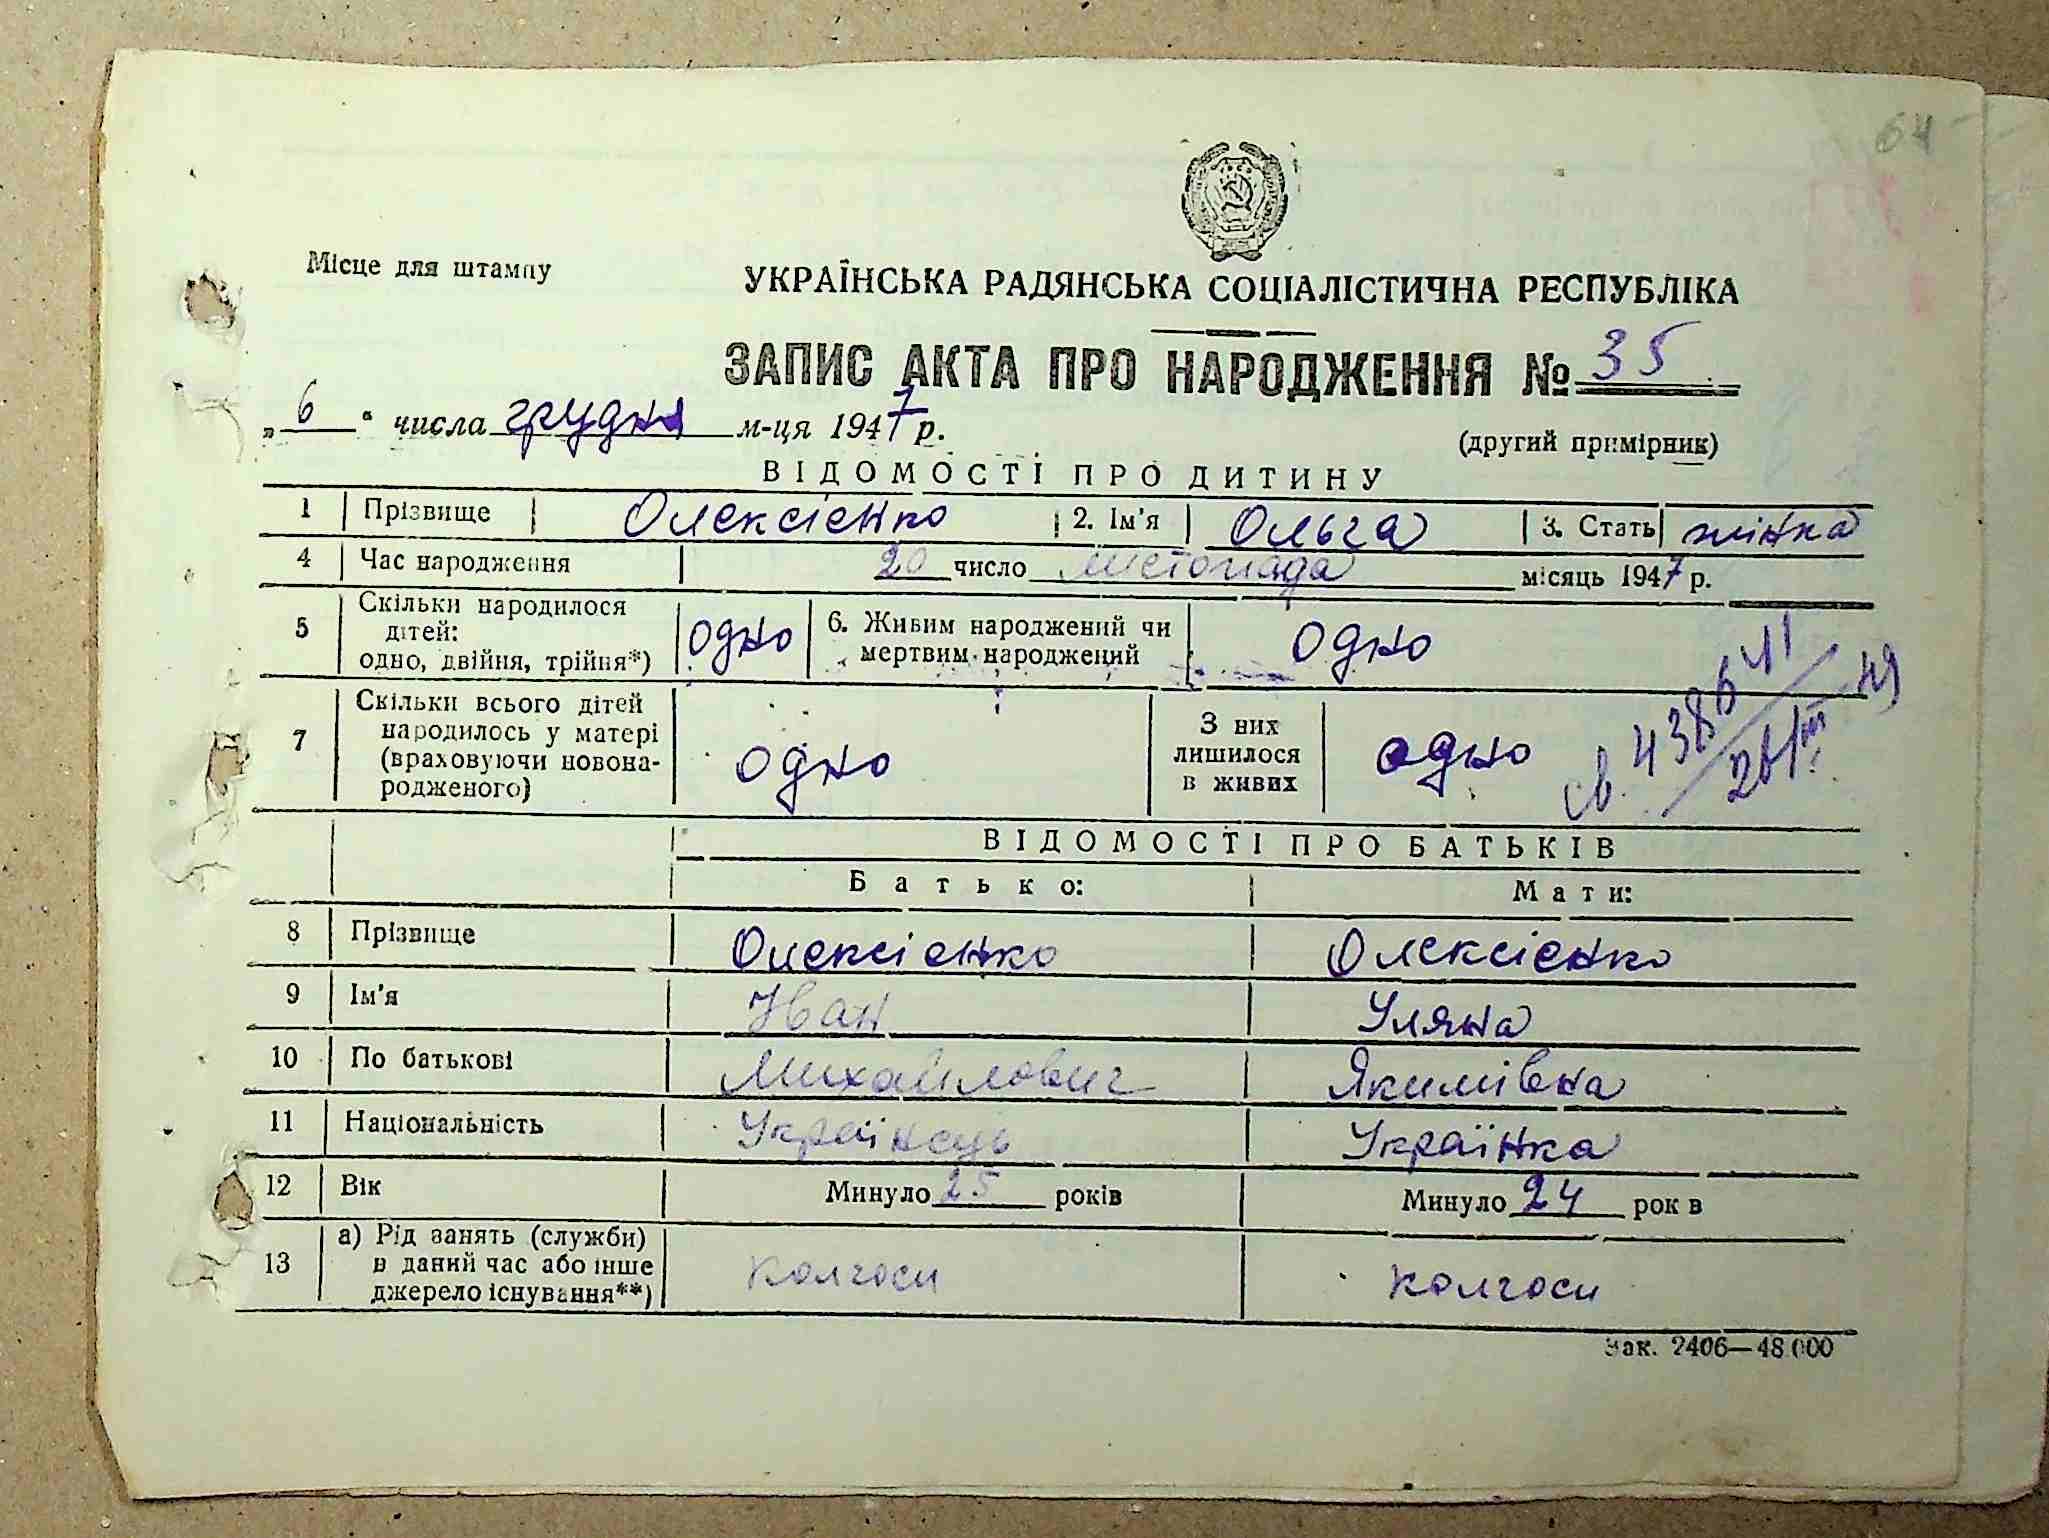 64
Місце для штампу
УКРАЇНСЬКА РАДЯНСЬКА СОЦІАЛІСТИЧНА РЕСПУБЛІКА
ЗАПИС АКТА ПРО НАРОДЖЕННЯ № 35
„ 6 “ числа грудня м-ця 1947 р.
(другий примірник)
ВІДОМОСТІ ПРО ДИТИНУ
1 Прізвище Олексієнко 2. Ім'я Ольга 3. Стать жінка
4 Час народження 20 число листопада місяць 1947 р.
5 Скільки народилося дітей: одно, двійня, трійня*) одно 6. Живим народжений чи мертвим народжений одно
7 Скільки всього дітей народилось у матері (враховуючи новонародженого) одно З них лишилося в живих одно
ВІДОМОСТІ ПРО БАТЬКІВ
Батько: Мати:
8 Прізвище Олексієнко Олексієнко
9 Ім'я Іван Уляна
10 По батькові Михайлович Якимівна
11 Національність Українець Українка
12 Вік Минуло 25 років Минуло 24 рок в
13 а) Рід занять (служби) в даний час або інше джерело існування**) колгосп колгосп
Зак. 2406—48.000